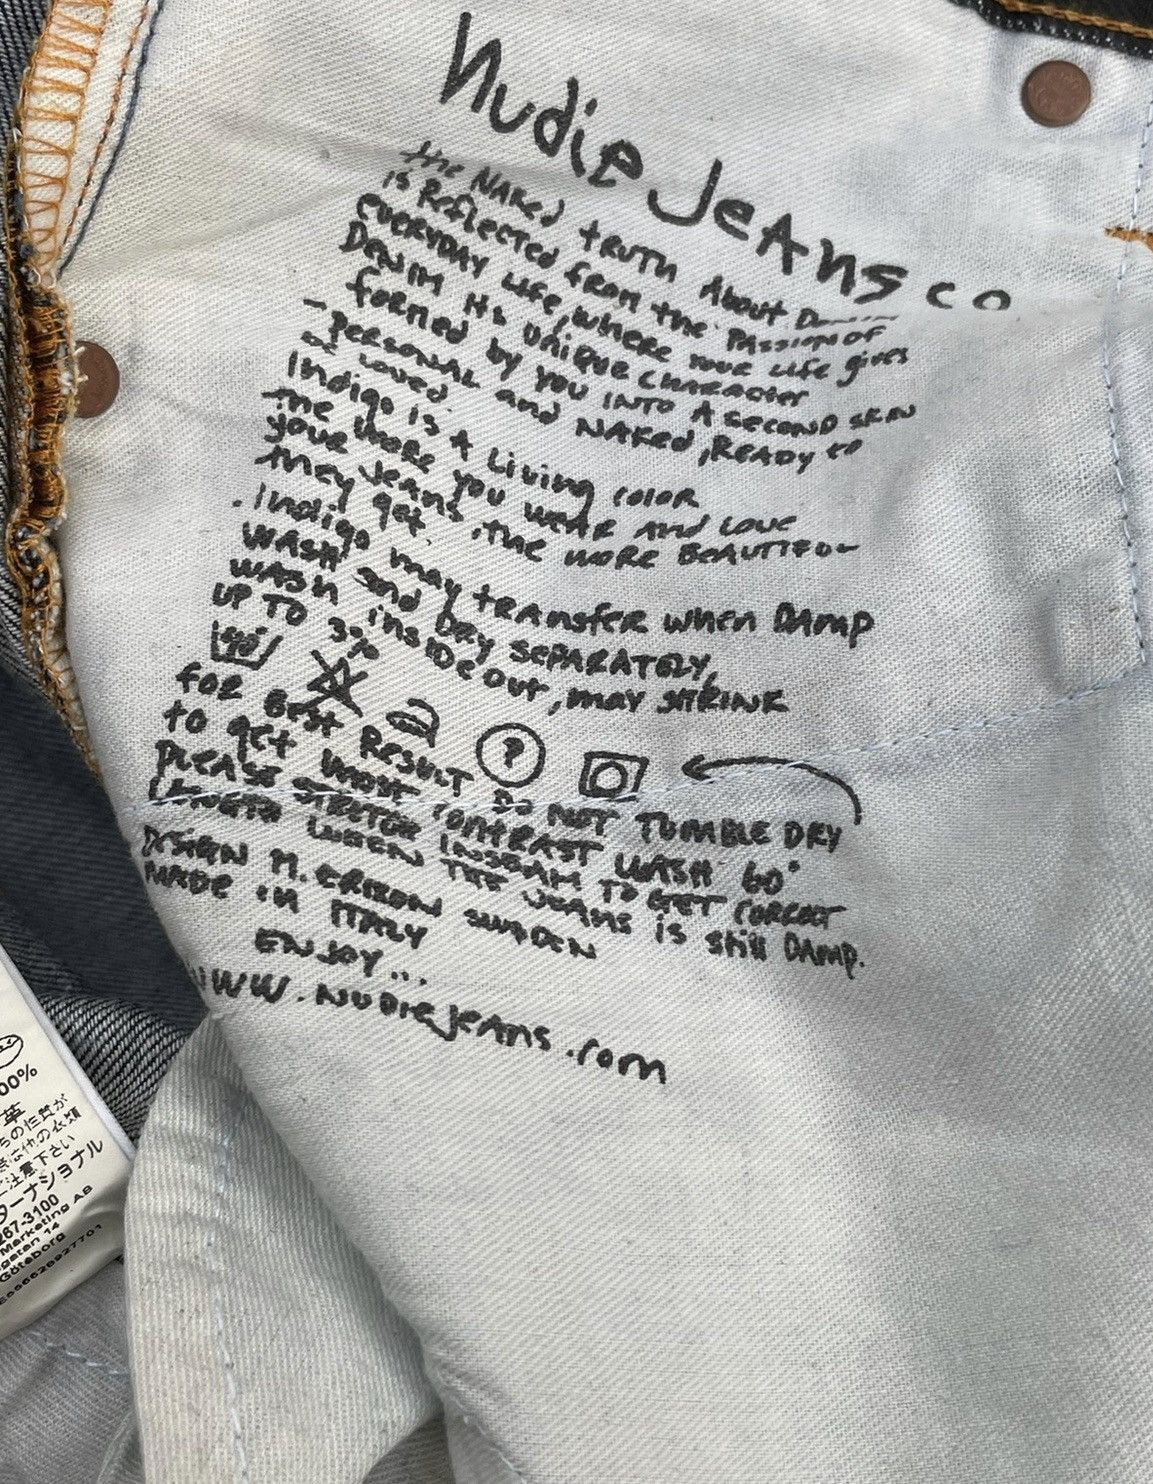 nudie Jeans co
the NAKed truth About D
is Reflected from the Passion of
everyday Life, where your Life gives
Denim its unique character
formed by you into A second skin
- personal and NAKed, Ready to
be Loved.
Indigo is A Living color
the more you wear and Love
your Jeans, the more Beautiful
they get.
. Indigo may transfer when DAmp
wash and Dry separately,
wash inside out, may shrink
up to 3%
40°
?
for Best Result Do not Tumble Dry
to get most contrast wash 60°
please stretch inseam to get correct
length when the Jeans is still DAmp.
Design M. Erixon Sweden
Made in Italy
Enjoy...
www.nudieJeans.com
00%
革
の性質が
他の衣類
注意下さい
ターナショナル
267-3100
Marketing AB
gatan 14
Göteborg